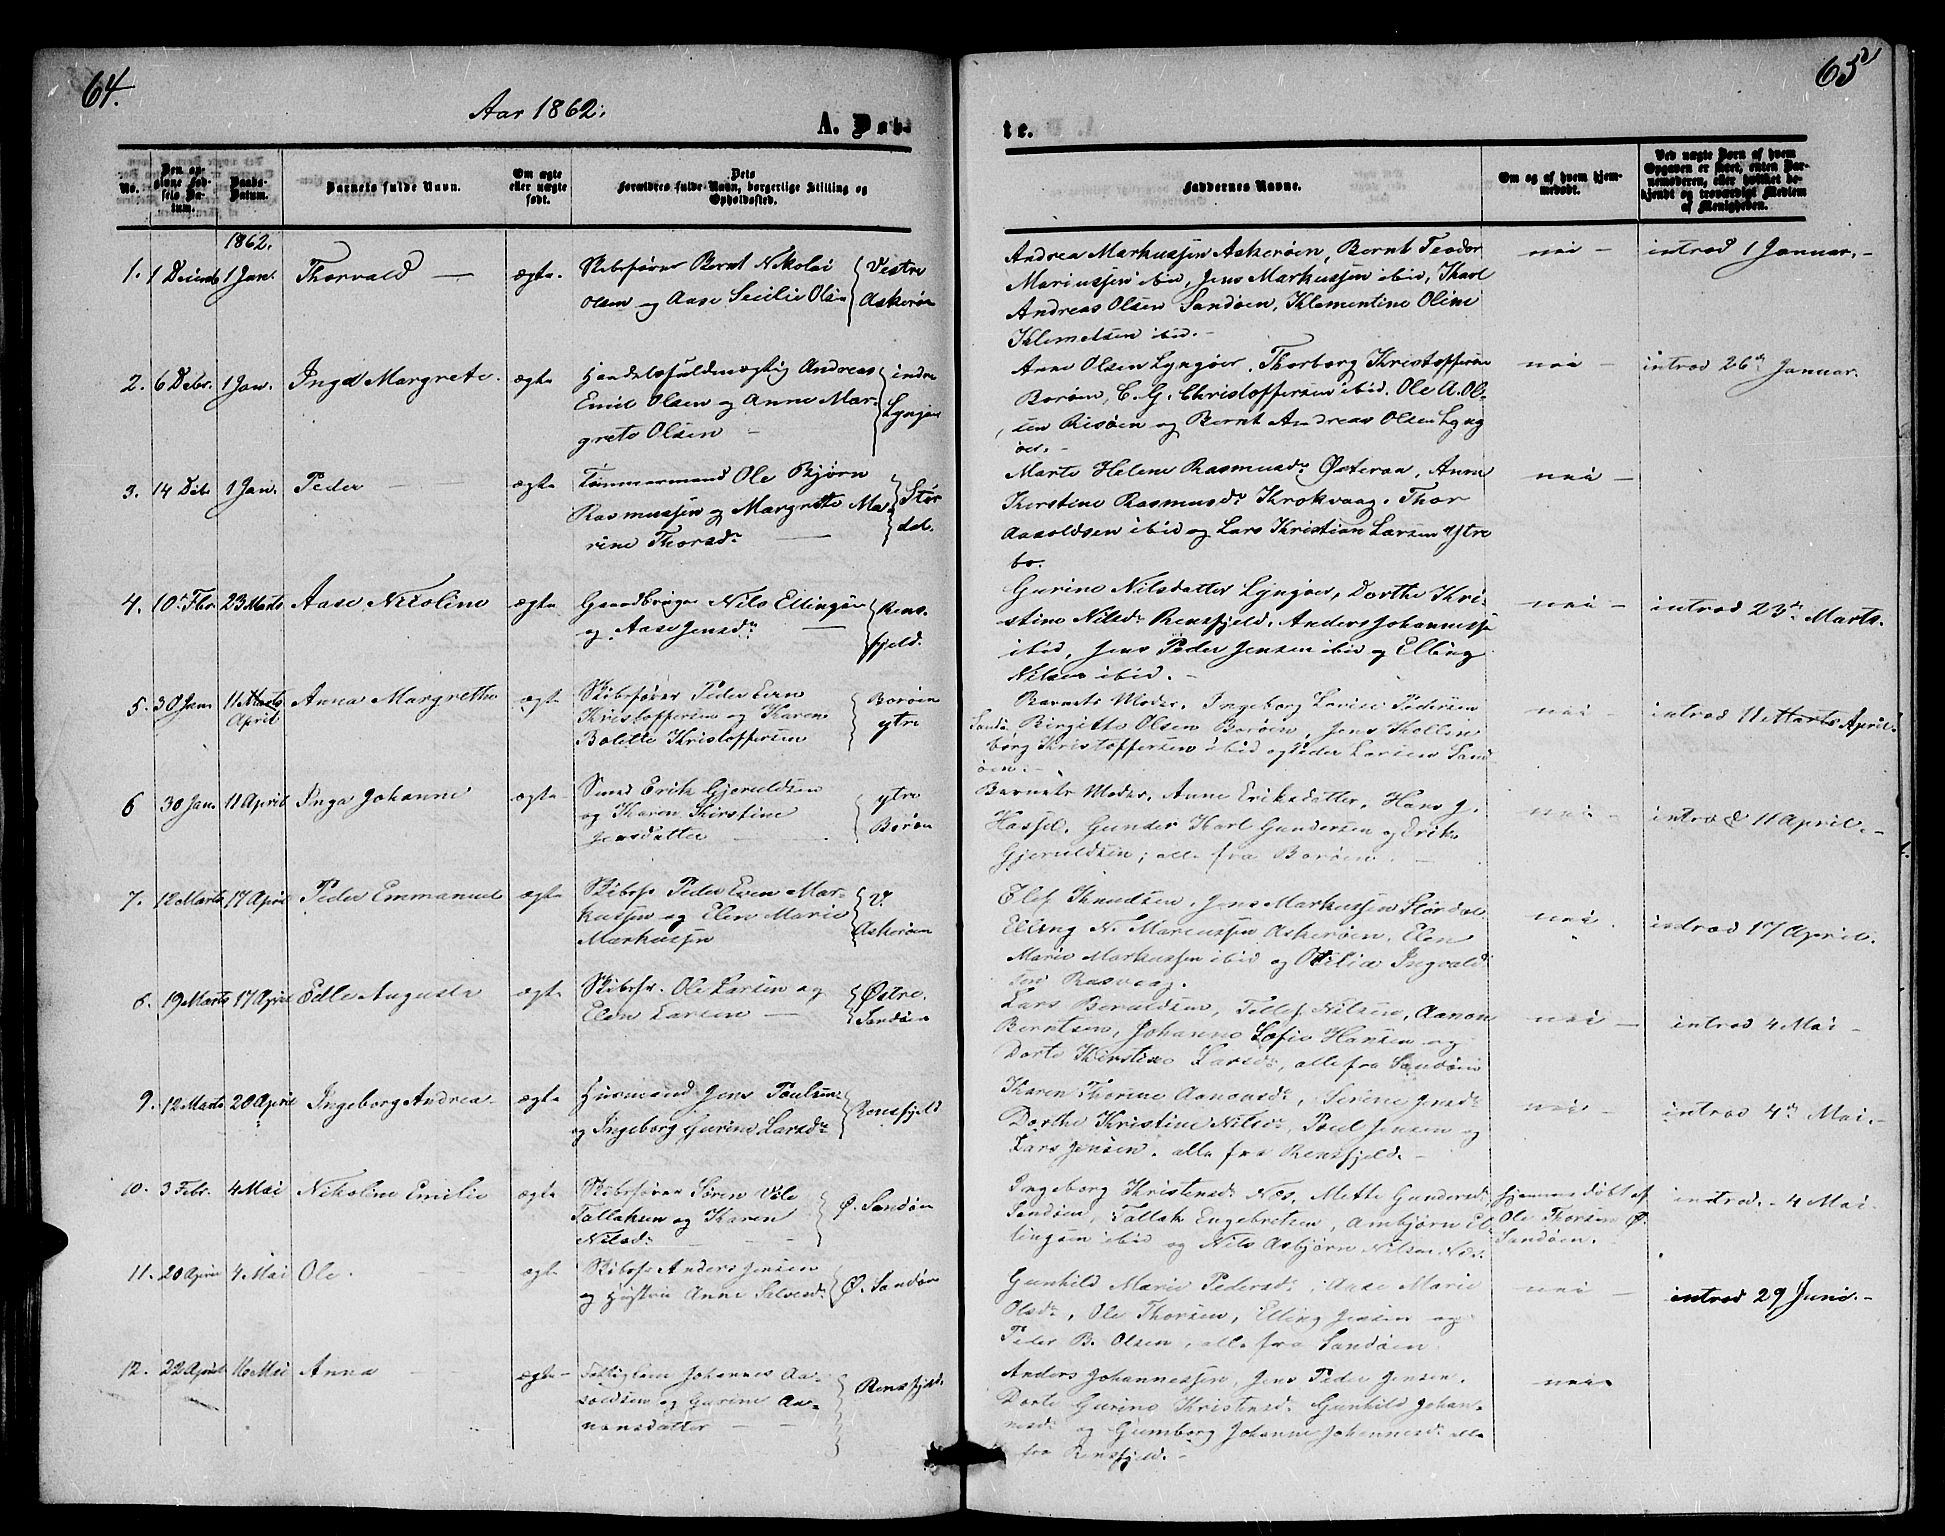 64.
Aar 1862.
A. Døb-
No.
Den an-
givne Fød-
sels Da-
tum.
Daabs-
Datum.
Barnets fulde Navn.
Om ægte
eller uægte
født.
Dets
Forældres fulde Navn, borgerlige Stilling og
Opholdssted.
1862.
1. 1 Decemb 1 Jan. Thorvald — ægte. Skibsfører Bernt Nikolai Vestre
Olsen og Aase Secilie Olsen Askerøen
2. 6 Debr. 1 Jan. Inga Margrete. ægte Handelsfuldmægtig Andreas indre
Emil Olsen og Anne Mar- Lyngør
grete Olsen —
3. 14 Debr 1 Jan. Peder — ægte Tømmermand Ole Bjørn
Rasmussen og Margrethe Ma- Stør
rine Thorsdr — dal.
4. 10de Fbr. 23 Marts Aase Nicoline ægte Gaardbruger Nils Ellingsen Rens-
og Aase Jensdr — fjeld.
5. 30 Jan 11 Marts April Anna Margrethe ægte Skibsfører Peder Even Borøen
Kristoffersen og Karen ytre
Bolette Kristoffersen
6 30 Jan 11 April Inga Johanne ægte Smed Erik Gjeruldsen ytre
og Karen Kirstine Borøen
Jensdatter —
7. 12 Marts 17 April Peder Emmanuel ægte Skibsf. Peder Even Mar- V.
kussen og Elen Marie Askerøen
Markussen
8. 19 Marts 17 April Edle Augusta ægte Skibsfr. Ole Larsen og Østre.
Elen Larsen — Sandøen
9. 12 Marts 20 April Ingeborg Andrea. ægte Husmand Jens Poulsen Rensfjeld
og Ingeborg Gurine Larsdr
10. 3 Febr. 4 Mai Nikoline Emilie ægte Skibsfører Søren Vile
Tallaksen og Karen Ø. Sandøen
Nilsdr —
11. 20 April 4 Mai Ole. ægte Skibsfr Anders Jensen
og Hustru Anne Salvesdr Ø. Sandøen
12. 22 April 16 Mai Anna ægte — Johannes Aa-
soldsen og Gurine Aa- Rensfjeld.
nonsdatter —
65
te.
Faddernes Navne.
Om og af hvem hjem-
medøbt.
Ved uægte Børn af hvem
Opgaven er skeet, enten Bar-
nemoderen, eller hvilket be-
kjendt og troværdigt Medlem
af Menigheden.
Andrea Markussen Askerøen, Bernt Teodor nei — introd 1 Januar. —
Mariussen ibid, Jens Markussen ibid, Karl
Andreas Olsen Sandøen, Klementine Oline
Klemetsen ibid. —
Anne Olsen Lyngøer, Thorborg Kristoffersen nei — introd 26de Januar.
Borøen, C. G. Christoffersen ibid. Ole A. Ol-
sen Risøen og Bernt Andreas Olsen Lyng
øer. —
Marte Helene Rasmusdr Østeraa, Anne nei —
Kirstine Rasmusdr Krokvaag, Thor
Aasoldsen ibid og Lars Kristian Larsen Ystre
bo.
Gurine Nilsdatter Lyngøer, Dorthe Kri- nei — introd 23de Marts.
stine Nilsdr Rensfjeld, Anders Johannesse
ibid, Jens Peder Jensen ibid og Elling
Nilsen ibid. —
Barnets Moder. Ingeborg Lovise Pedersen nei introd 11 Marts April
Sandø Birgitte Olsen Borøen, Jens Kollen
borg Kristoffersen ibid og Peder Larsen Sand
øen. —
Barnets Moder, Anne Eriksdatter, Hans J. nei — introd 11 April. —
Hassel, Gunder Karl Gundersen og Erik
Gjeruldsen, alle fra Borøen. —
Elef Knudsen, Jens Markussen Størdal nei introd 17 April.
Elling N. Mareussen Askerøen, Elen
Marie Markussen ibid og Otilia Ingvald
sen Rasvaag.
Lars Beruldsen, Tellef Nilsen, Aanon nei — introd 4 Mai —
Berntsen, Johanne Sofie Hansen og
Dorte Kirstine Larsdr, alle fra Sandøen
Karen Thorine Aanonsdr, Serine Jensdr nei — introd 4de Mai. —
Dorthe Kristine Nilsdr, Poul Jensen og
Lars Jensen, alle fra Rensfjeld. —
Ingeborg Kristensdr Næs, Mette Gundersdr hjemmedøbt af introd. - 4 Mai.
Sandøen, Tallak Engebretsen, Ambjørn El- Ole Thorsen Ø.
lingsen ibid og Nils Asbjørn Nilsen Næs. Sandøen.
Gunhild Marie Pedersdr, Aase Marie nei — introd 29 Juni. —
Olsdr, Ole Thorsen, Elling Jensen og
Peder B. Olsen, alle fra Sandøen.
Anders Johannessen, Jens Peder Jensen, nei.
Dorte Gurine Kristensdr Gunhild Johan-
nesdr og Gumborg Johanne Johannesdr alle
fra Rensfjeld. —